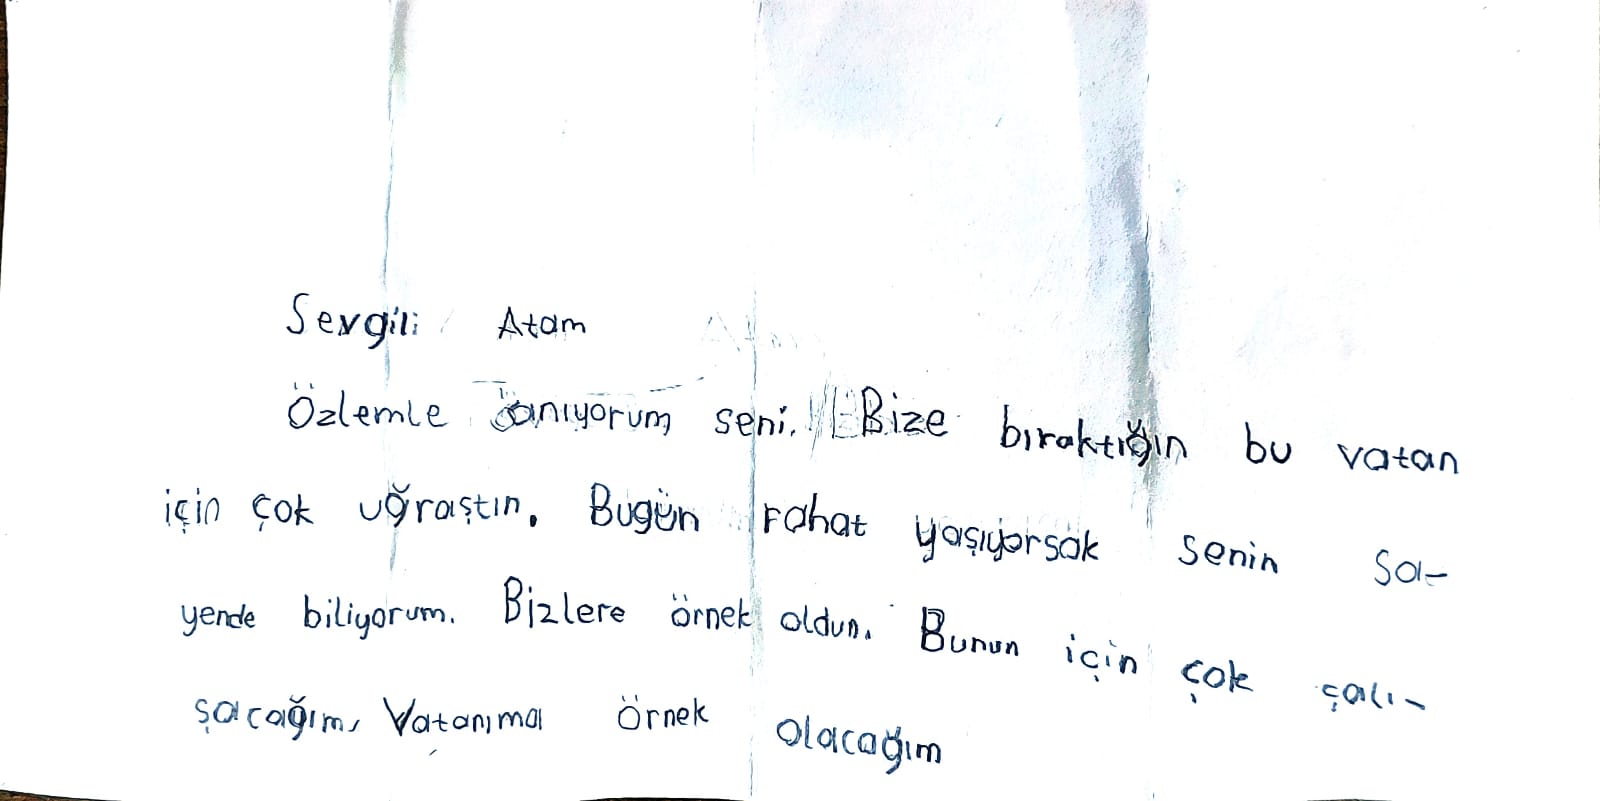 Sevgili Atam
Özlemle anıyorum seni. Bize bıraktığın bu vatan
için çok uğraştın. Bugün rahat yaşıyorsak senin sa-
yende biliyorum. Bizlere örnek oldun. Bunun için çok çalı-
şacağım, Vatanıma örnek olacağım